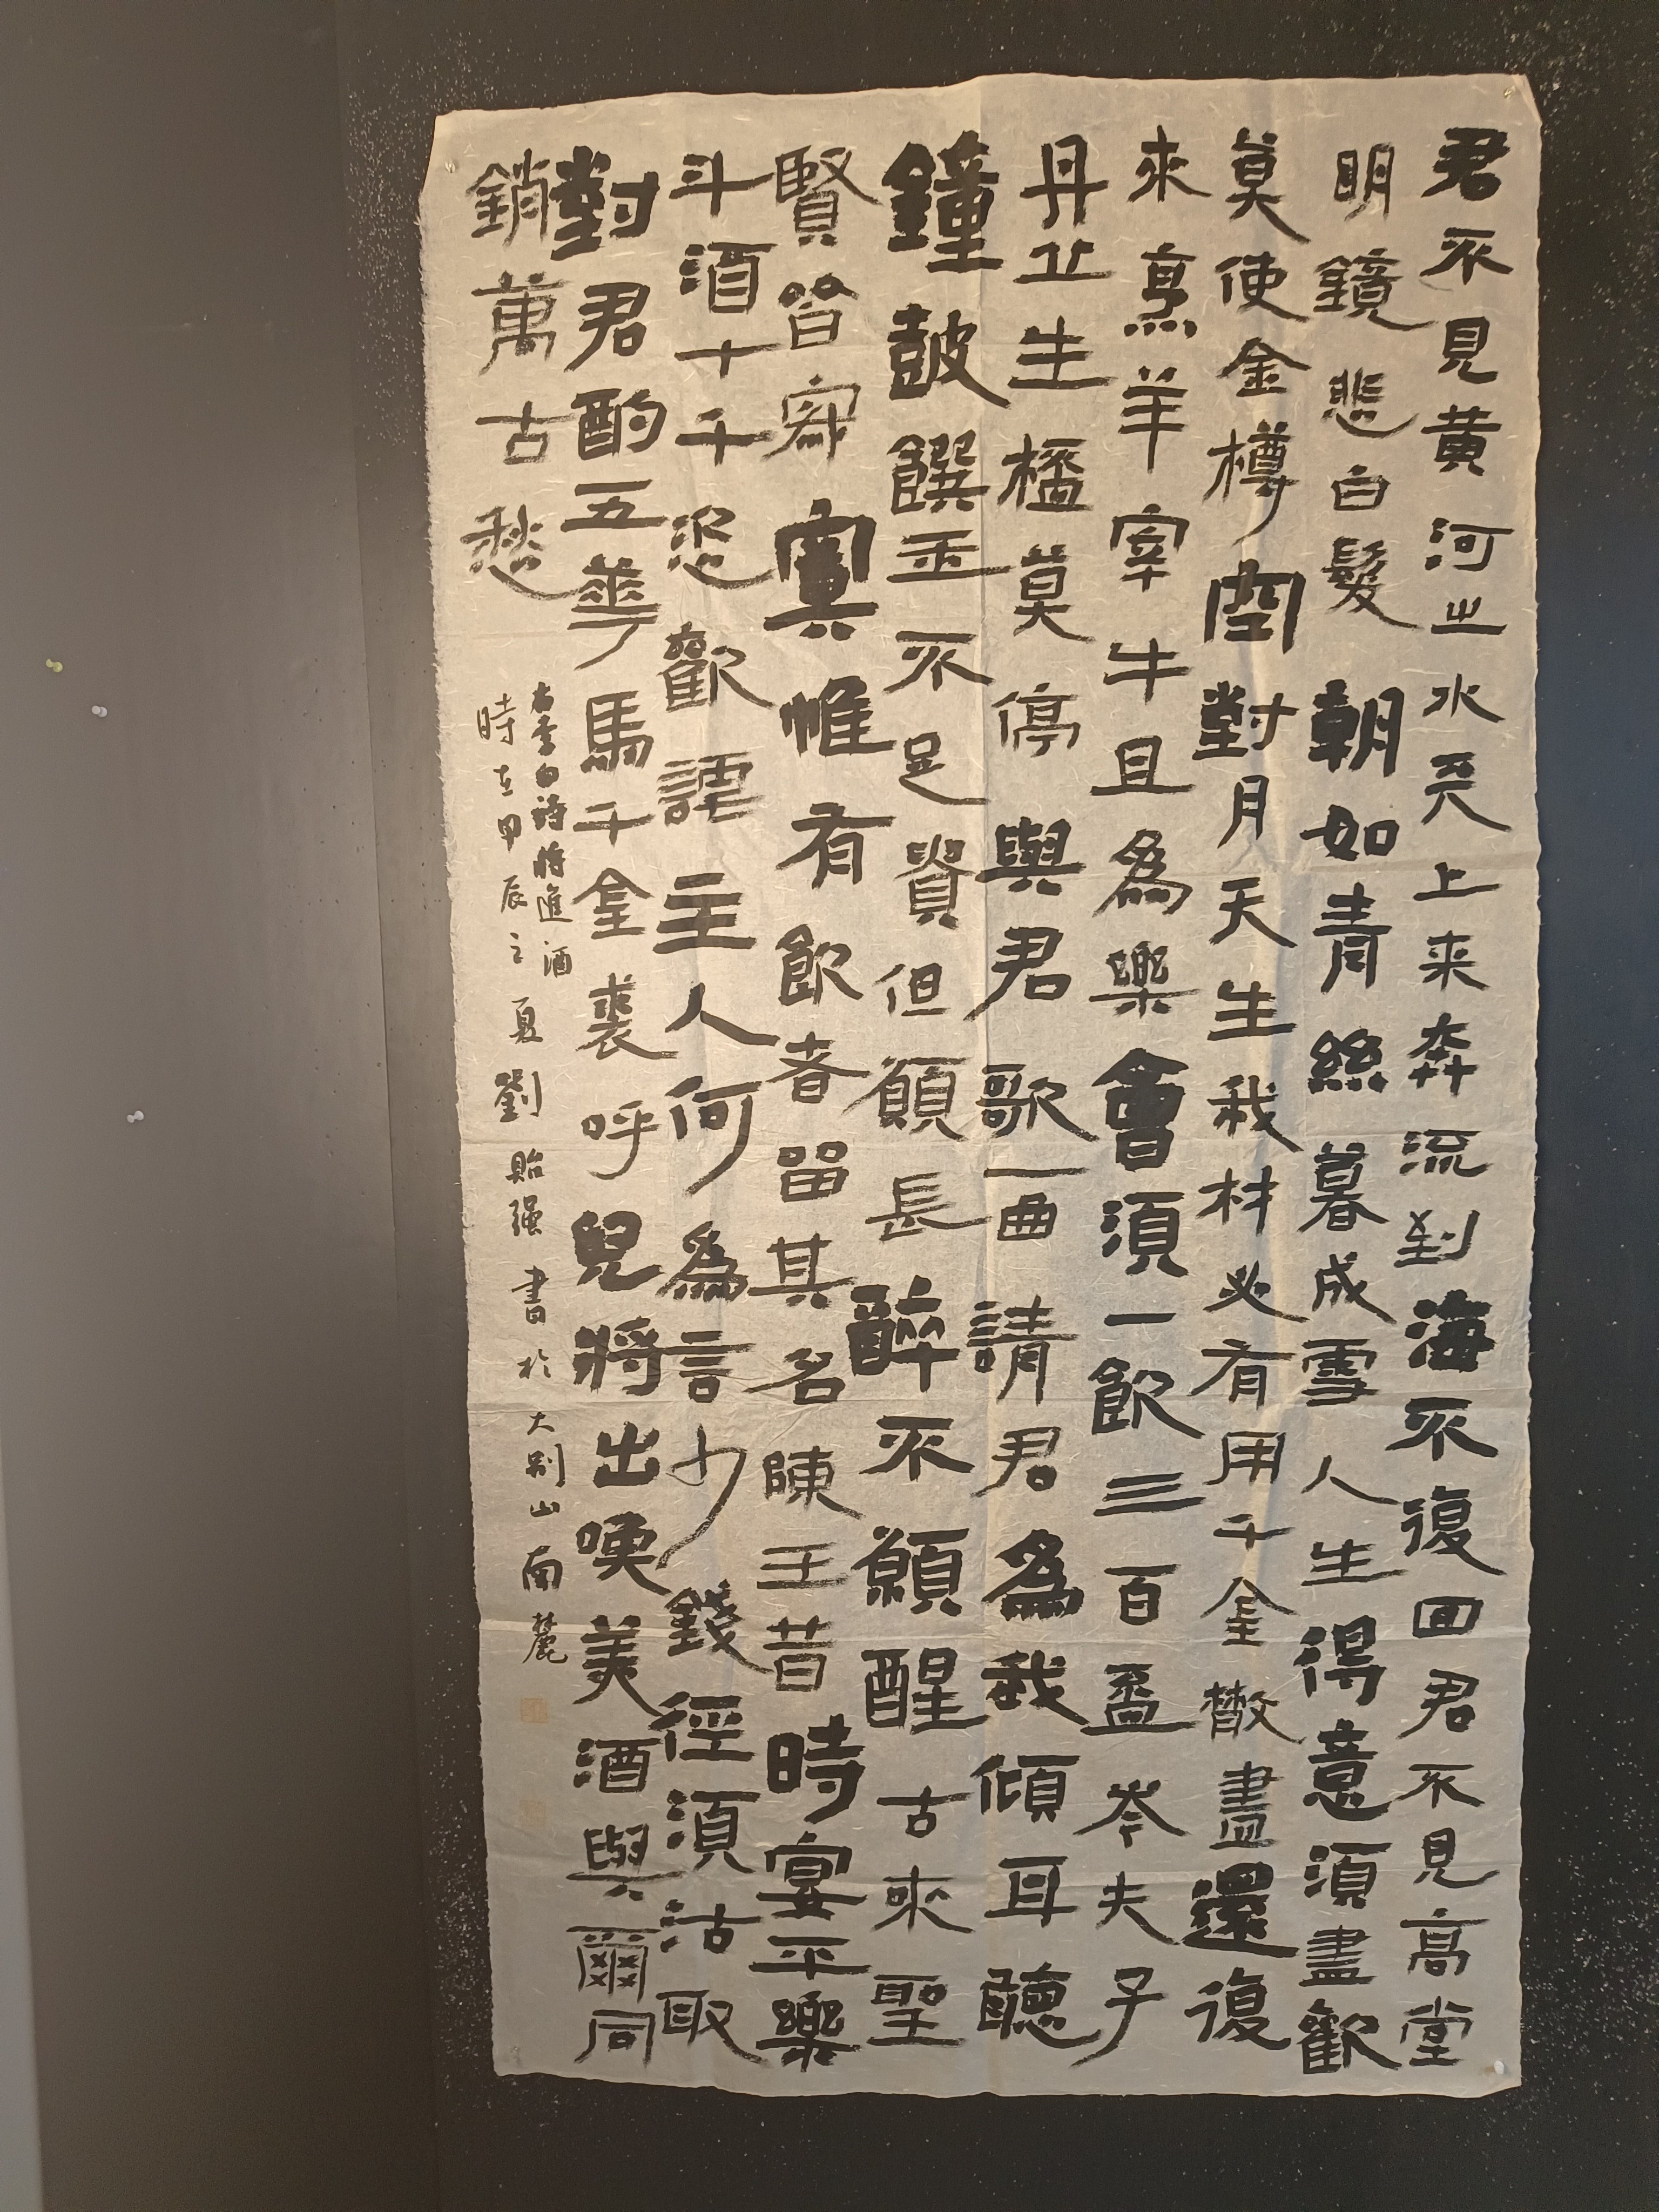 君不見黃河之水天上来奔流到海不復回君不見高堂
明鏡悲白髮朝如青絲暮成雪人生得意須盡歡
莫使金樽空對月天生我材必有用千金散盡還復
來烹羊宰牛且為樂會須一飲三百盃岑夫子
丹丘生櫺莫停與君歌一曲請君為我傾耳聽
鐘鼓饌玉不足資但願長醉不願醒古來聖
賢皆寂寞惟有飲者留其名陳王昔時宴平樂
斗酒十千恣歡謔主人何為言少錢徑須沽取
對君酌五華馬千金裘呼兒將出喚美酒與爾同
銷萬古愁
右李白詩將進酒
時在甲辰之夏劉貽强書於大別山南麓